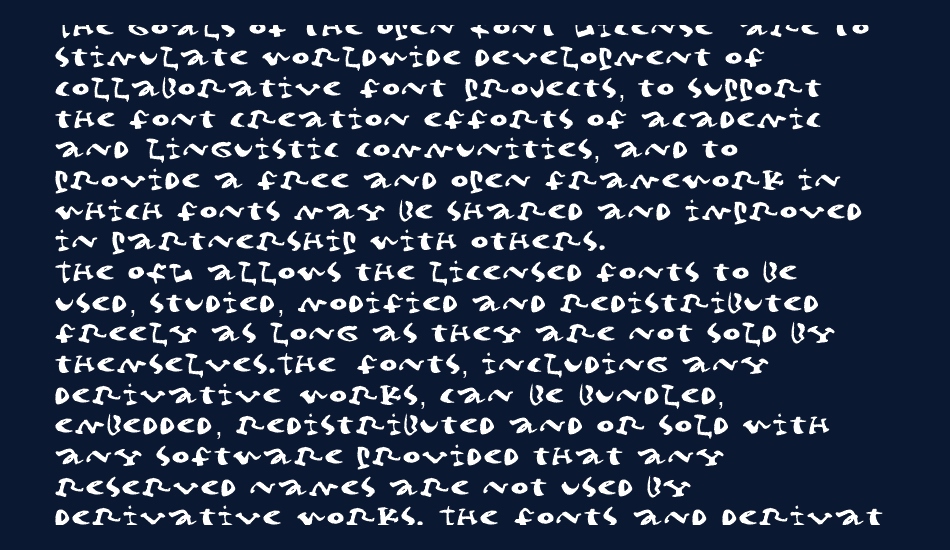 The goals of the Open Font License are to
stimulate worldwide development of
collaborative font projects, to support
the font creation efforts of academic
and linguistic communities, and to
provide a free and open framework in
which fonts may be shared and improved
in partnership with others.
The OFL allows the licensed fonts to be
used, studied, modified and redistributed
freely as long as they are not sold by
themselves.The fonts, including any
derivative works, can be bundled,
embedded, redistributed and or sold with
any software provided that any
reserved names are not used by
derivative works. The fonts and derivat